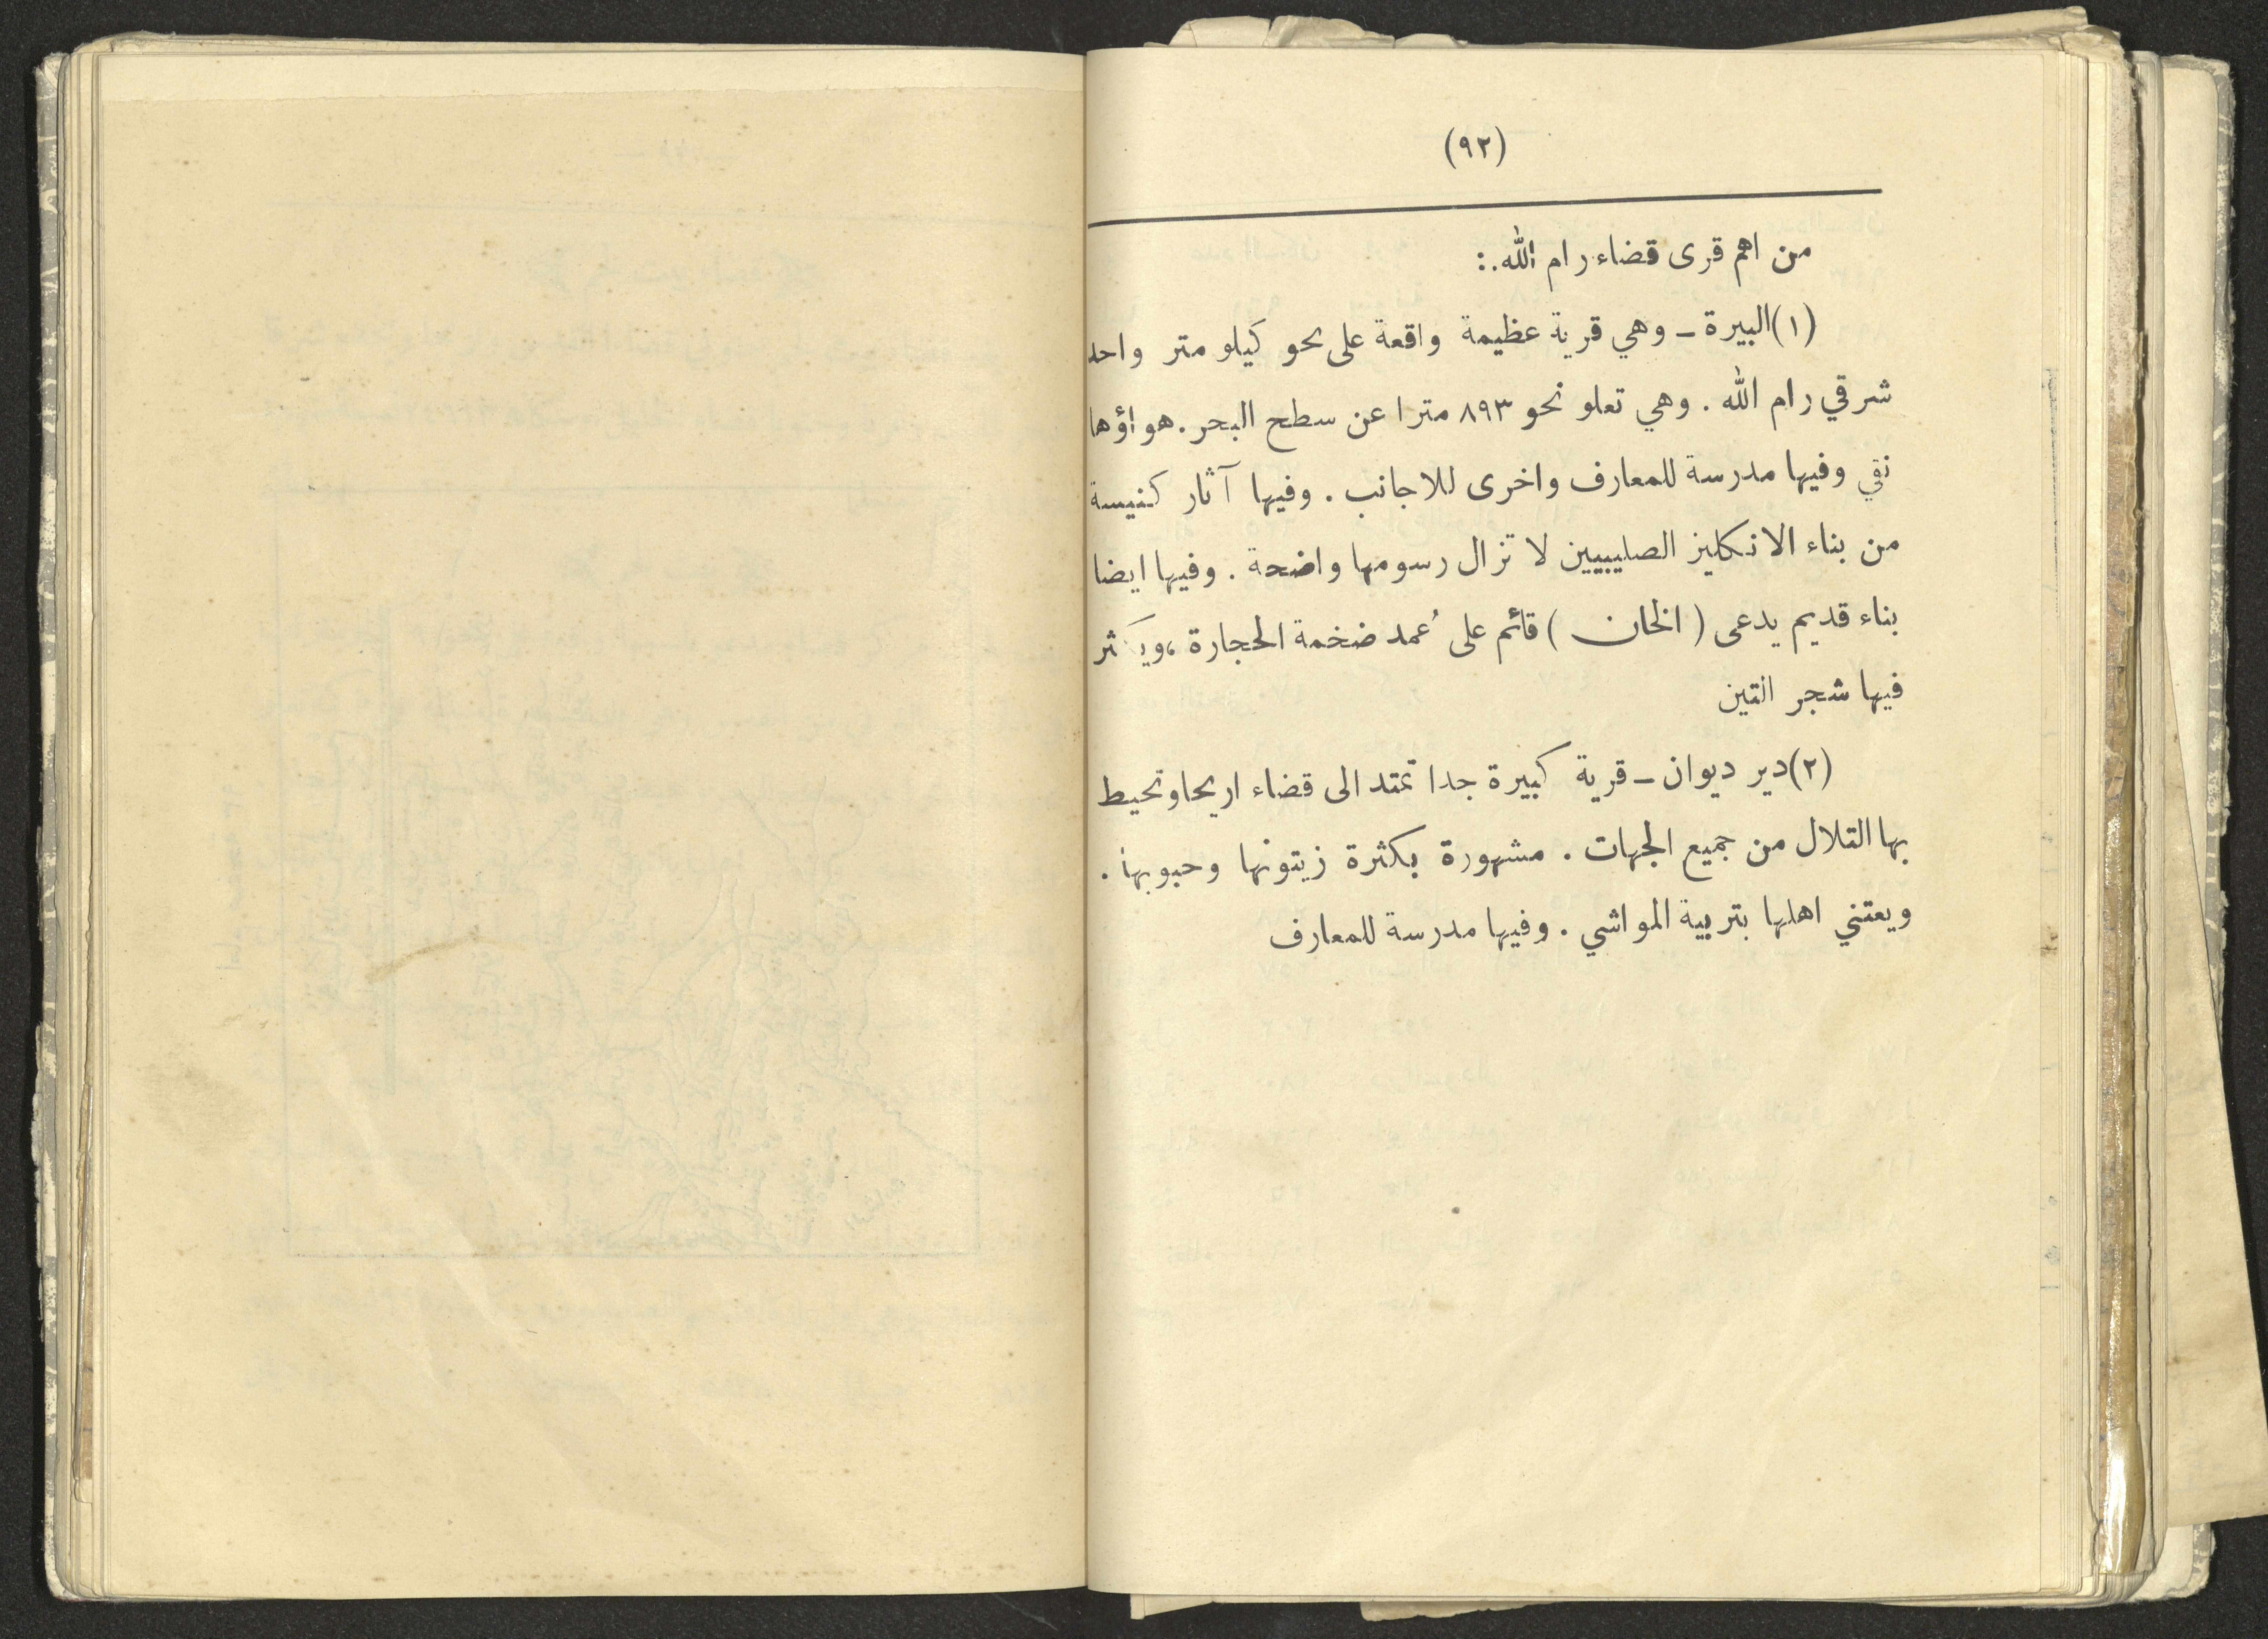 (٩٢)
من اهم قرى قضاء رام الله.:
(١)البيرة ـ وهي قرية عظيمة واقعة على نحو كيلو متر واحد
شرقي رام الله . وهي تعلو نحو ٨٩٣ مترا عن سطح البحر . هواؤها
نقي وفيها مدرسة للمعارف واخرى للاجانب . وفيها آثار كنيسة
من بناء الانكليز الصليبيين لا تزال رسومها واضحة . وفيها ايضا
بناء قديم يدعى ( الخان ) قائم على عُمد ضخمة الحجارة ، ويكثر
فيها شجر التين
(٢)دير ديوان ـ قرية كبيرة جدا تمتد الى قضاء اريحا وتحيط
بها التلال من جميع الجهات . مشهورة بكثرة زيتونها وحبوبها .
ويعتني اهلها بتربية المواشي . وفيها مدرسة للمعارف